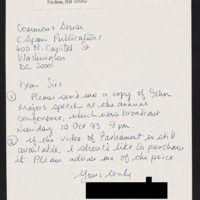 Nashua, NH 03062
Commons Series
C Span Publications
400 N. Capitol St
Washington
DC 20001
Dear Sirs
① Please send me a copy of John
Majors speech at the annual
conference, which was broadcast
Sunday 10 Oct 93 9 pm.
② If the video of Parliament is still
available, I should like to purchase
it. Please advise me of the price
Yours truly